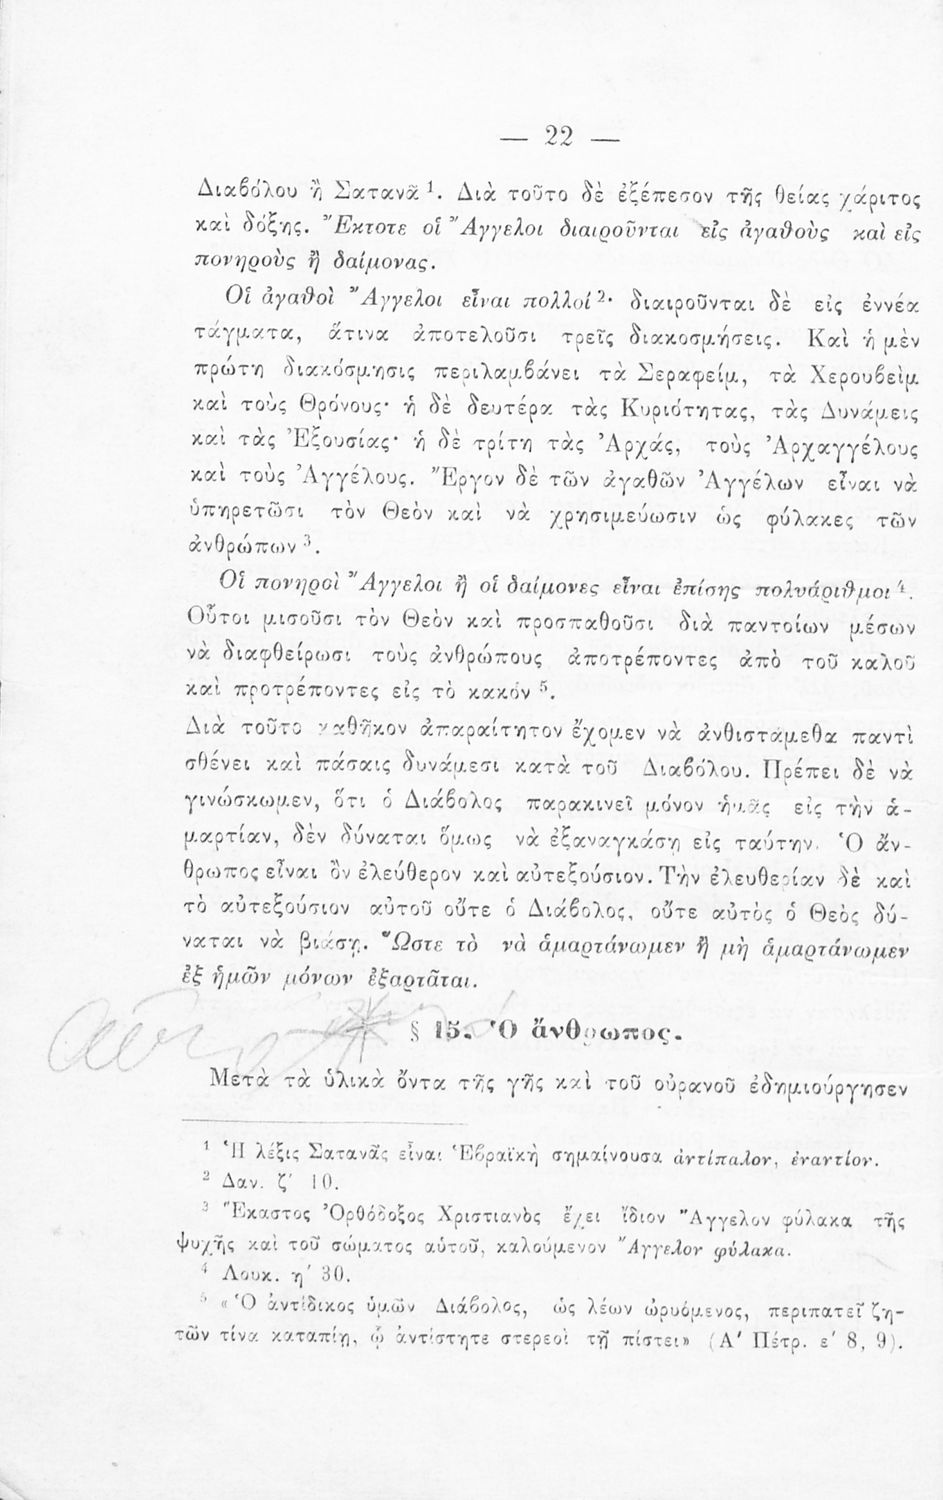 — 22 —
Διαβόλου ἢ Σατανᾶ ¹. Διὰ τοῦτο δὲ ἐξέπεσον τῆς θείας χάριτος
καὶ δόξης. Ἔκτοτε οἱ Ἄγγελοι διαιροῦνται εἰς ἀγαθοὺς καὶ εἰς
πονηροὺς ἢ δαίμονας.
Οἱ ἀγαθοὶ Ἄγγελοι εἶναι πολλοί ²· διαιροῦνται δὲ εἰς ἐννέα
τάγματα, ἅτινα ἀποτελοῦσι τρεῖς διακοσμήσεις. Καὶ ἡ μὲν
πρώτη διακόσμησις περιλαμβάνει τὰ Σεραφείμ, τὰ Χερουβεὶμ
καὶ τοὺς Θρόνους· ἡ δὲ δευτέρα τὰς Κυριότητας, τὰς Δυνάμεις
καὶ τὰς Ἐξουσίας· ἡ δὲ τρίτη τὰς Ἀρχάς, τοὺς Ἀρχαγγέλους
καὶ τοὺς Ἀγγέλους. Ἔργον δὲ τῶν ἀγαθῶν Ἀγγέλων εἶναι νὰ
ὑπηρετῶσι τὸν Θεὸν καὶ νὰ χρησιμεύωσιν ὡς φύλακες τῶν
ἀνθρώπων ³.
Οἱ πονηροὶ Ἄγγελοι ἢ οἱ δαίμονες εἶναι ἐπίσης πολυάριθμοι ⁴.
Οὗτοι μισοῦσι τὸν Θεὸν καὶ προσπαθοῦσι διὰ παντοίων μέσων
νὰ διαφθείρωσι τοὺς ἀνθρώπους ἀποτρέποντες ἀπὸ τοῦ καλοῦ
καὶ προτρέποντες εἰς τὸ κακόν ⁵.
Διὰ τοῦτο καθῆκον ἀπαραίτητον ἔχομεν νὰ ἀνθιστάμεθα παντὶ
σθένει καὶ πάσαις δυνάμεσι κατὰ τοῦ Διαβόλου. Πρέπει δὲ νὰ
γινώσκωμεν, ὅτι ὁ Διάβολος παρακινεῖ μόνον ἡμᾶς εἰς τὴν ἁ-
μαρτίαν, δὲν δύναται ὅμως νὰ ἐξαναγκάσῃ εἰς ταύτην. Ὁ ἄν-
θρωπος εἶναι ὂν ἐλεύθερον καὶ αὐτεξούσιον. Τὴν ἐλευθερίαν δὲ καὶ
τὸ αὐτεξούσιον αὐτοῦ οὔτε ὁ Διάβολος, οὔτε αὐτὸς ὁ Θεὸς δύ-
ναται νὰ βιάσῃ. Ὥστε τὸ νὰ ἁμαρτάνωμεν ἢ μὴ ἁμαρτάνωμεν
ἐξ ἡμῶν μόνων ἐξαρτᾶται.
§ 15. Ὁ ἄνθρωπος.
Μετὰ τὰ ὑλικὰ ὄντα τῆς γῆς καὶ τοῦ οὐρανοῦ ἐδημιούργησεν
¹ Ἡ λέξις Σατανᾶς εἶναι Ἑβραϊκὴ σημαίνουσα ἀντίπαλον, ἐναντίον.
² Δαν. ζ′ 10.
³ Ἕκαστος Ὀρθόδοξος Χριστιανὸς ἔχει ἴδιον Ἄγγελον φύλακα τῆς
ψυχῆς καὶ τοῦ σώματος αὐτοῦ, καλούμενον Ἄγγελον φύλακα.
⁴ Λουκ. η′ 30.
⁵ «Ὁ ἀντίδικος ὑμῶν Διάβολος, ὡς λέων ὠρυόμενος, περιπατεῖ ζη-
τῶν τίνα καταπίῃ, ᾧ ἀντίστητε στερεοὶ τῇ πίστει» (Α′ Πέτρ. ε′ 8, 9).